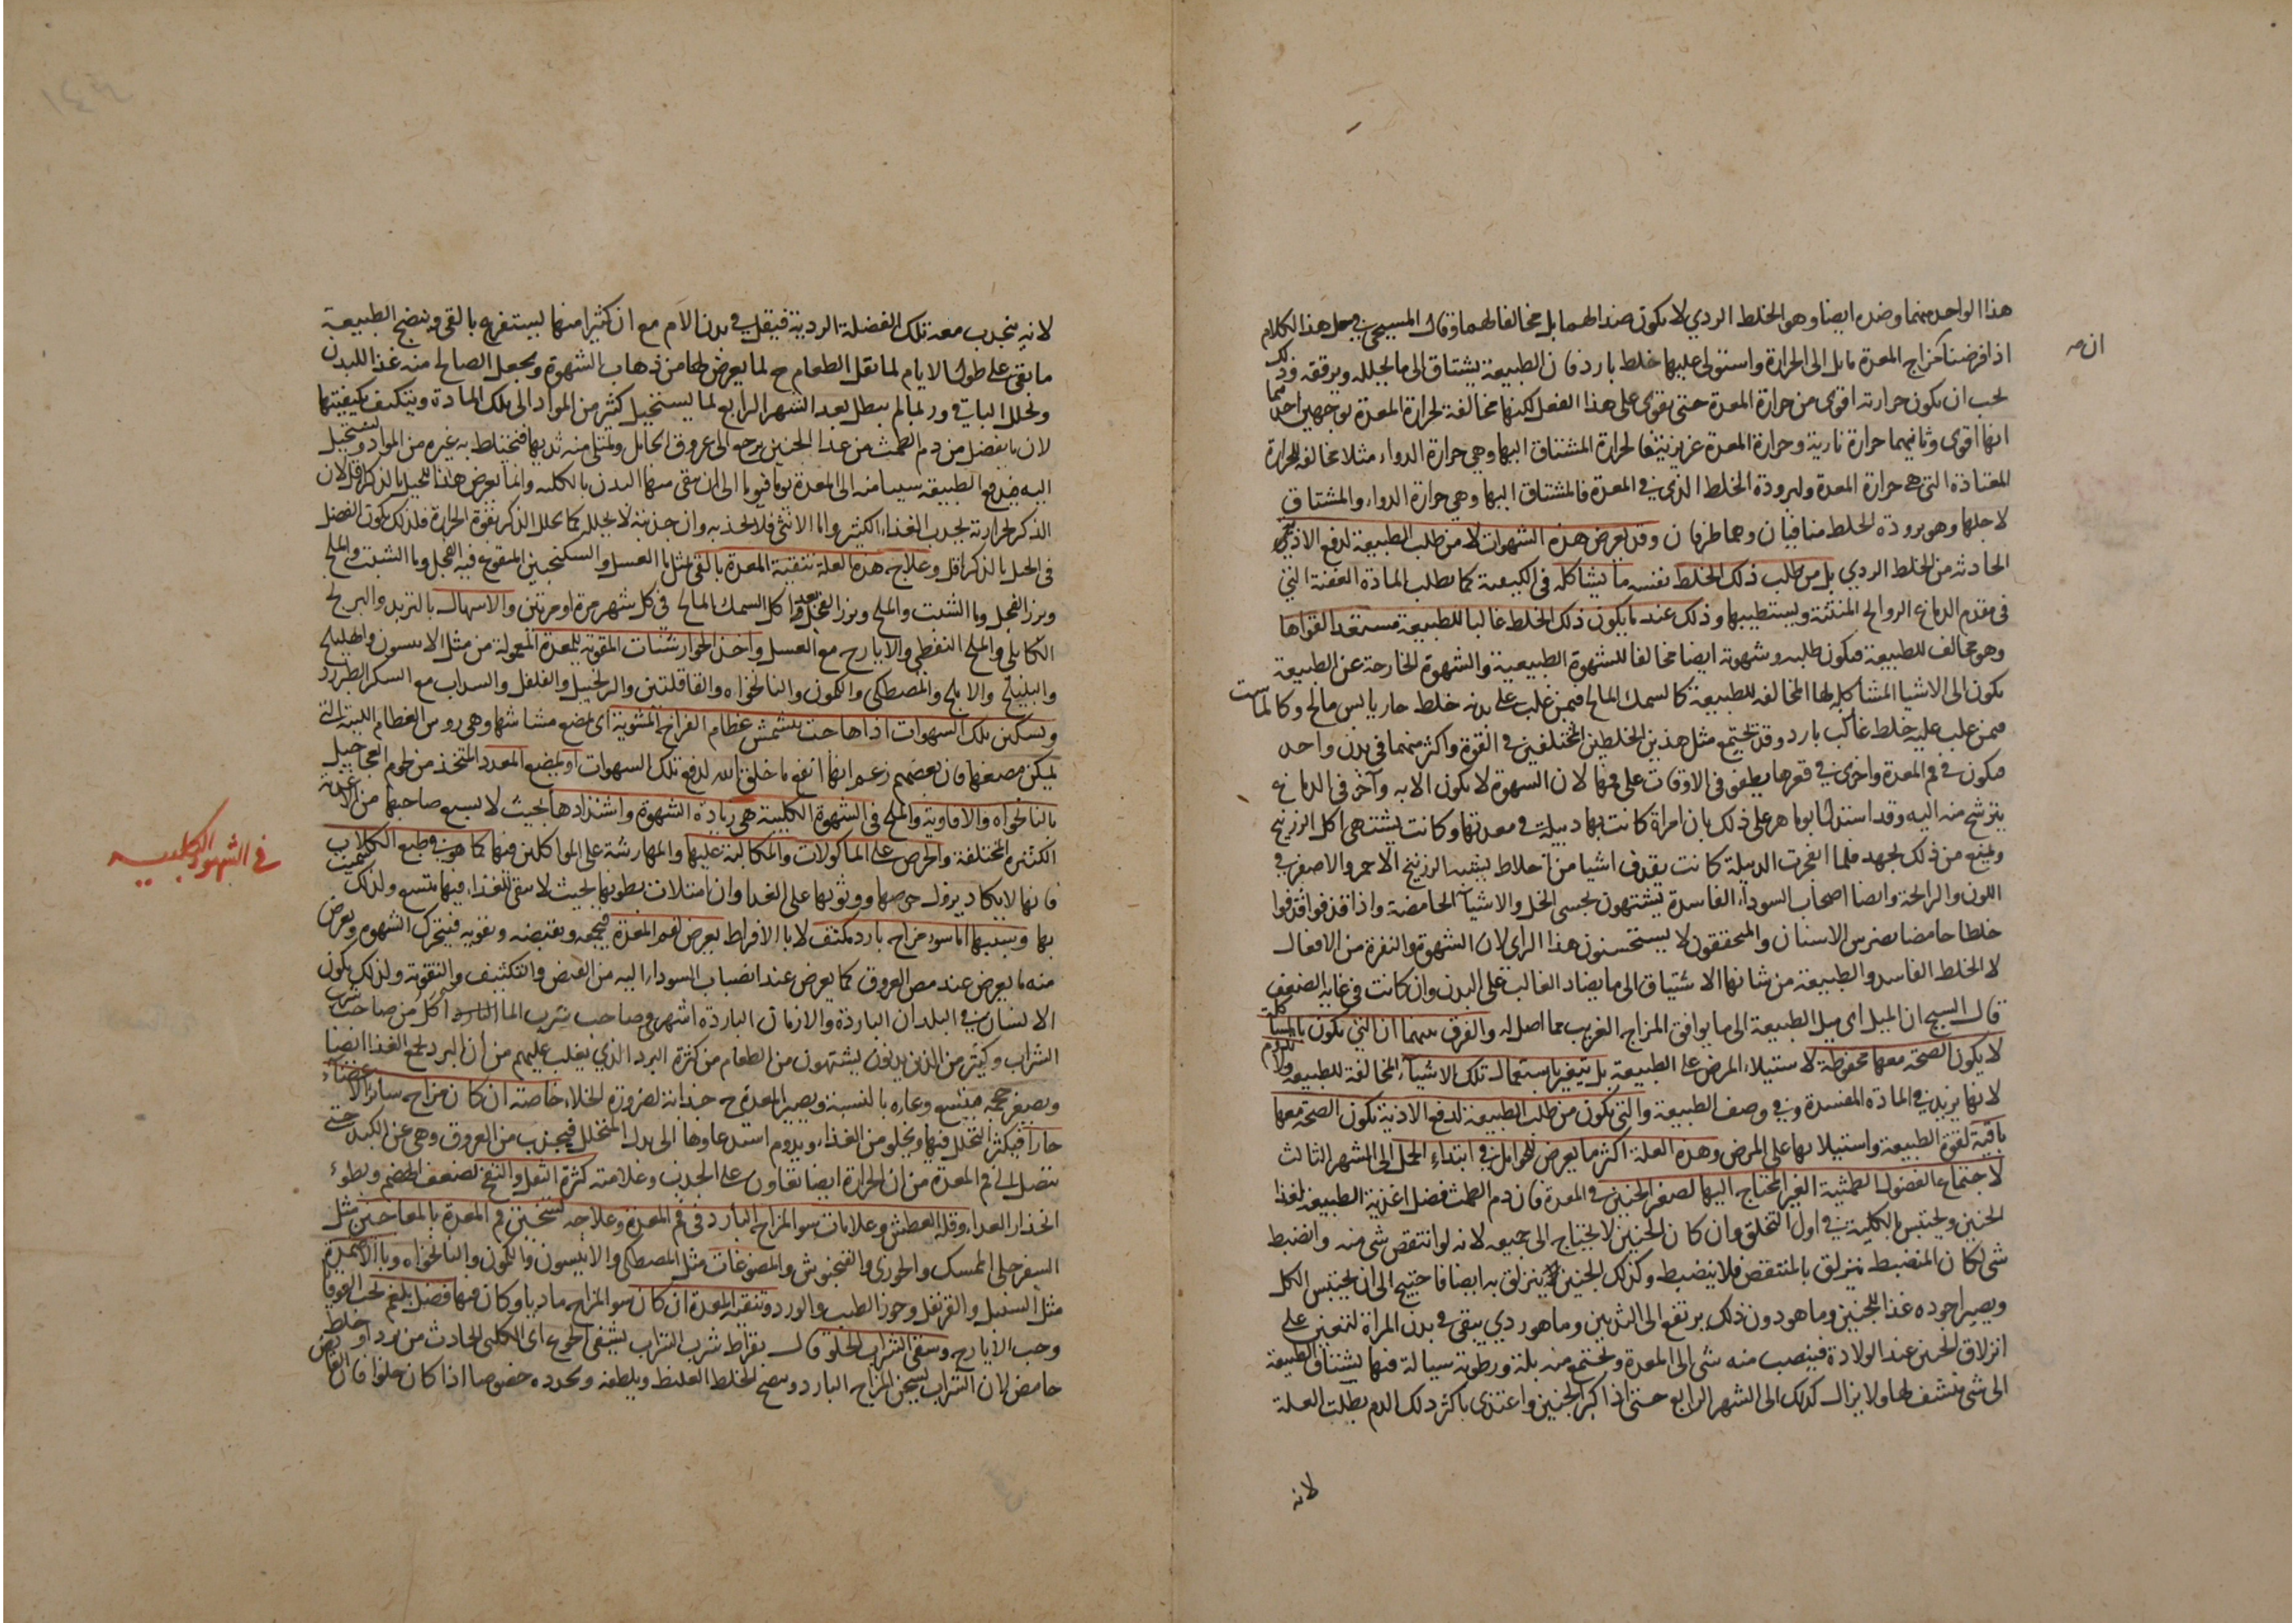 هذا الواحد منهما وضده ايضا وهو الخلط الردي لا يكون ضدا لهما بل مخالفا لهما وقال المسيحي في حل هذا الكلام
اذا فرضنا مزاج المعدة مائل الى الحرارة واستولى عليها خلط بارد فان الطبيعة يشتاق الى ما يحلله ويرققه وذلك
ان
يجب ان يكون حرارته اقوى من حرارة المعدة حتى يقوى على هذا الفعل لكنها مخالفة لحرارة المعدة بوجهين احدهما
انها اقوى وثانيهما حرارة نارية وحرارة المعدة غريزية فالحرارة المشتاق اليها وهي حرارة الدواء مثلا مخالفة للحرارة
المعتادة التي هي حرارة المعدة ولبرودة الخلط الذي في المعدة فالمشتاق اليها وهي حرارة الدواء والمشتاق
لاجلها وهو برودة الخلط متنافيان وهما طرفان وقد يعرض هذه الشهوات لا من طلب الطبيعة لدفع الاذى
الحادثة من الخلط الردي بل من طلب ذلك الخلط بنفسه ما يشاكله في الكيفية كما يطلب المادة العفنة التي
في مقدم الدماغ الروائح المنتنة ويستطيبها وذلك عند ما يكون ذلك الخلط غالبا للطبيعة مستنفدا لقواها
وهو مخالف للطبيعة فيكون طلبه وشهوته ايضا مخالفا للشهوة الطبيعية والشهوة الخارجة عن الطبيعة
يكون الى الاشيا المشاكلة لها المخالفة للطبيعة كالسمك المالح فيمن غلب على بدنه خلط حار يابس مالح وكالماست
فيمن غلب عليه خلط غالب بارد وقد تجتمع مثل هذين الخلطين المختلفين في القوة واكثر منهما في بدن واحد
فيكون في فم المعدة واخرى في قعرها يطفو في الاوقات على فمها لان الشهوة لا يكون الا به وآخر في الدماغ
يترشح منه اليه وقد استدل ابو ماهر على ذلك بان امراة كانت بها دبيلة في معدتها وكانت يشتهى اكل الزرنيخ
ويمنع من ذلك بجهد فلما انفجرت الدبيلة كانت يقذف اشيا من اخلاط يشبه الزرنيخ الاحمر والاصفر في
اللون والرائحة وايضا اصحاب السوداء الفاسدة يشتهون بحسى الخل والاشياء الحامضة واذا قذفوا قذفوا
خلطا حامضا يضرس الاسنان والمحققون لا يستحسنون هذا الراي لان الشهوة والنفرة من الافعال
لا الخلط الفاسد والطبيعة من شانها الاشتياق الى ما يضاد الغالب على البدن وان كانت في غاية الضعف
قال المسيح ان الميل اى ميل الطبيعة الى ما يوافق المزاج الغريب مما اصل له والفرق بينهما ان التي يكون بالمشاكلة
لا يكون الصحة معها محفوظة لاستيلاء المرض على الطبيعة بل يتغير باستعمال تلك الاشياء المخالفة للطبيعة
لانها يزيد في المادة المفسدة وفي وصف الطبيعة والتي يكون من طلب الطبيعة لدفع الاذية يكون الصحة معها
باقية لقوة الطبيعة واستيلائها على المرض وهذه العلة اكثر ما يعرض للحوامل في ابتداء الحمل الى الشهر الثالث
لاجتماع الفضول الطمثية الغير المحتاج اليها لصغر الجنين في المعدة فان دم الطمث فضل اعديه الطبيعة لغذا
الجنين ويحتبس بالكلية في اول التخلق وان كان الجنين لا يحتاج الى جميعه لانه لو انتقص شى منه وانضبط
شى لكان المنضبط ينزلق بالمنتقص فلا ينضبط وكذلك الجنين ينزلق به ايضا فاحتيج الى ان يحتبس الكل
ويصير اجوده غذا للجنين وما هو دون ذلك يرتفع الى الثديين وما هو ردي يبقى في بدن المراة لتعين على
انزلاق الجنين عند الولادة فينصب منه شى الى المعدة ويجتمع منه بلة ورطوبة سيالة فيها يشتاق الطبيعة
الى شى ينشف لها ولا يزال كذلك الى الشهر الرابع حتى اذا كبر الجنين واغتذى باكثر ذلك الدم بطلت العلة
لانه
لانه ينجذب معه تلك الفضلة الردية فيقل في بدن الام مع ان كثيرا منها يستفرغ بالقى وينضج الطبيعة
ما بقى على طول الايام لما تقل الطعام ح لما يعرض لها من ذهاب الشهوة ويجعل الصالح منه غذا للبدن
وتحلل الباقي وربما لم يبطل بعد الشهر الرابع لما يستحيل كثير من المواد الى تلك المادة ويتكيف بكيفيتها
لان ما يفضل من دم الطمث من غذا الجنين يرجع الى عروق الحامل ويمتلى منه ثديها فتختلط به غيره من المواد ويستحيل
اليه فيدفع الطبيعة شيا منه الى المعدة يوما فيوما الى ان ينقى منها البدن بالكلية وانما يعرض هذا للحبلى بالذكر اقل لان
الذكر لحرارته يجذب الغذاء الكثير واما الانثى فلا تجذبه وان جذبته لا يحلل كما يحلل الذكر بقوة الحرارة فلذلك يكون الفضل
في الحبل بالذكر اقل وعلاج هذه العلة تنقية المعدة بالقى بمثل ما العسل والسكنجبين المنقوع فيه الفجل وما الشبت والملح
وبزر الفجل وما الشبت والملح وبزر الفجل بعد اكل السمك المالح في كل شهر مرة او مرتين والاسهال بالتربد والبرنج
الكابلي والملح النفطي والايارج مع العسل واخذ الجوارشنات المقوية للمعدة المعمولة من مثل الانيسون والهليلج
والبليلج والاملج والمصطكى والكمون والنانخواه والقاقلتين والزنجبيل والفلفل والسذاب مع السكر الطبرزد
ويسكن تلك الشهوات اذا هاجت بتمشمش عظام الفراخ المشوية اى مضع مشاشها وهي روس العظام اللينة التي
يمكن مضغها فان بعضهم زعم انها انفع ما خلق الله لدفع تلك الشهوات او بمضع المقدد المتخذ من لحوم العجاجيل
بالنانخواه والافاوية والملح في الشهوة الكلبية هي زيادة الشهوة واشتدادها بحيث لا يشبع صاحبها من الاغذية
في الشهوة الكلبية
الكثيرة المختلفة والحرص على الماكولات والمكالبة عليها والمهارشة على المواكلين فيها كما هو في طبع الكلاب
فانها لا يكاد يزول حرصها ووثوبها على الغذا وان امتلات بطونها بحيث لا يبقى للغذاء فيها متسع ولذلك سميت
بها وسببها اما سوء مزاج بارد مكثف لا بالافراط يعرض لفم المعدة فيجمعه ويقبضه ويقويه فيتحرك الشهوة ويعرض
منه ما يعرض عند مص العروق كما يعرض عند انصباب السوداء اليه من القبض والتكثيف والتقوية ولذلك يكون
الانسان في البلدان الباردة والازمان الباردة اشهى وصاحب شرب الماء البارد آكل من صاحب شرب
الشراب وكثير من الذين يدنفون يشتهون من الطعام من كثرة البرد الذي يغلب عليهم من ان البرد يجمع الغذا ايضا
ويصغر حجمه فيتسع وعاوه بالنسبة ويصير المعدة ح جذابة لضرورة الخلاء خاصة ان كان مزاج سائر الاعضاء
حارا فيكثر التحلل فيها ويخلو من الغذاء ويدوم استدعاوها الى بدل المتحلل فيجذب من العروق وهي عن الكبد حتى
يتصل الى فم المعدة من ان الحرارة ايضا تعاون على الجذب وعلامته كثرة الثفل والنفخ لضعف الهضم وبطوء
انحدار الغداء وقلة العطش وعلامات سو المزاج البارد في فم المعدة وعلاجه تسخين فم المعدة بالمعاجين مثل
السفرجلى الممسك والخوزى والفنجنوش والمضوغات مثل المصطكى والانيسون والكمون والنانخواه وبالاضمدة
مثل السنبل والقرنفل وجوز الطيب والورد وتنقية المعدة ان كان سو المزاج ماديا وكان فيها فضل بلغم بحب القوقايا
وحب الايارج وسقى الشراب الحلو قال بقراط شرب الشراب يشفى الجوع اى الكلبى الحادث من برد او خلط
حامض لان الشراب يسخن المزاج البارد وينضج الخلط الغليظ ويلطفه ويحدره خصوصا اذا كان حلوا فان